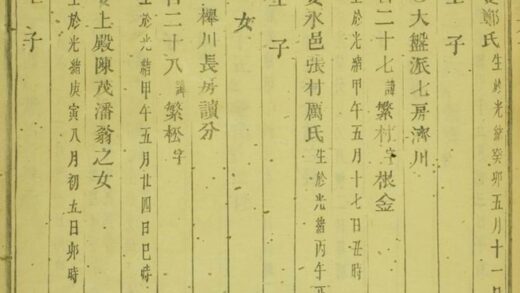 鄭氏生於光緒癸卯五月十一日
子
大盤派七房濟川
二十七諱繁村字根金
於光緒甲午五月十七日丑時
永邑張村厲氏生於光緒丙午
子
女
川長房讀分
二十八諱繁松字
於光緒甲午五月廿四日巳時
上殿陳茂潘翁之女
於光緒庚寅八月初五日卯時
子